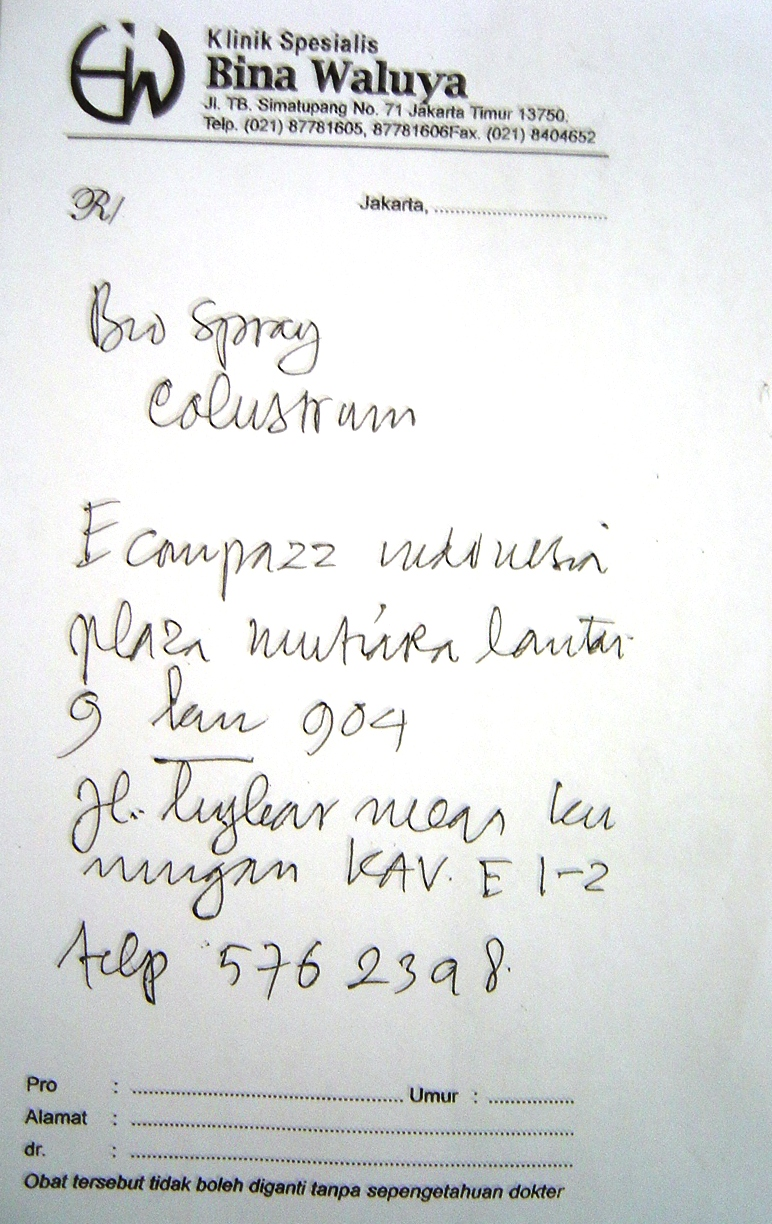 Klinik Spesialis
Bina Waluya
Jl. TB. Simatupang No. 71 Jakarta Timur 13750.
Telp. (021) 87781605, 87781606Fax. (021) 8404652
R/ Jakarta, ........................................
Bio Spray
Colustrum
Ecompazz indonesia
plaza mutiara lantai
9 904
Jl. Lingkar mega ku
ningan KAV. E 1-2
telp 576 2398.
Pro : ........................................ Umur : ....................
Alamat : ........................................
dr. : ........................................
Obat tersebut tidak boleh diganti tanpa sepengetahuan dokter